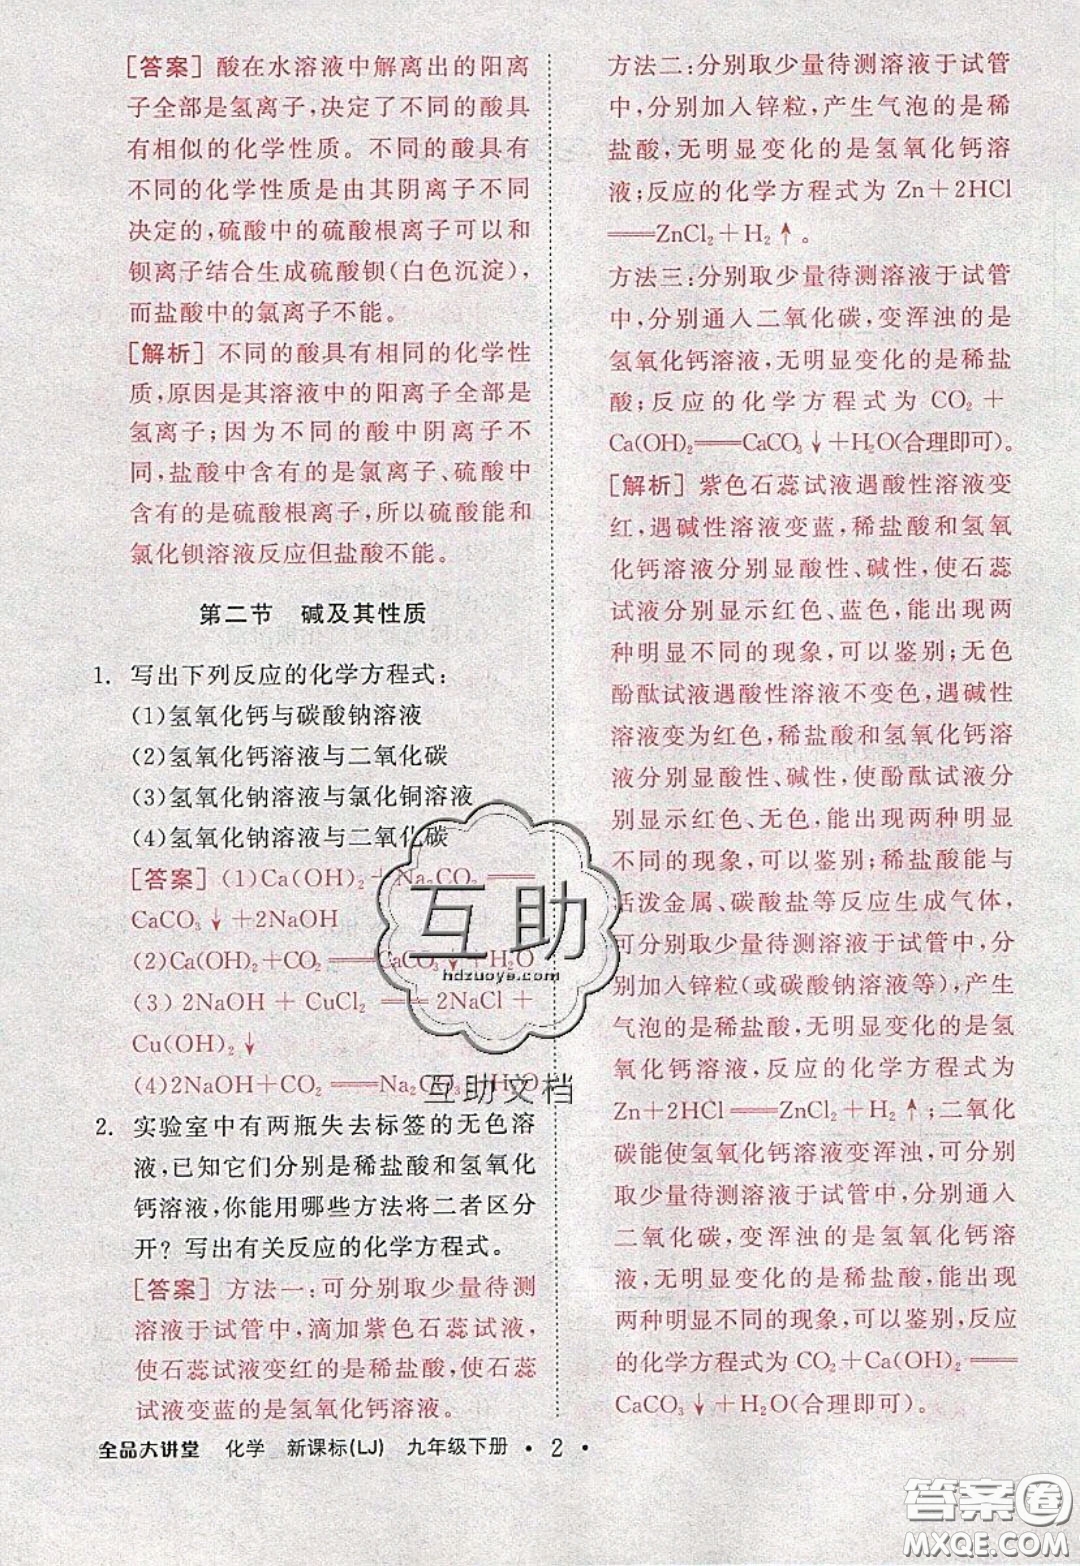 [答案] 酸在水溶液中解离出的阳离
子全部是氢离子,决定了不同的酸具
有相似的化学性质。不同的酸具有
不同的化学性质是由其阴离子不同
决定的,硫酸中的硫酸根离子可以和
钡离子结合生成硫酸钡(白色沉淀),
而盐酸中的氯离子不能。
[解析] 不同的酸具有相同的化学性
质,原因是其溶液中的阳离子全部是
氢离子;因为不同的酸中阴离子不
同,盐酸中含有的是氯离子、硫酸中
含有的是硫酸根离子,所以硫酸能和
氯化钡溶液反应但盐酸不能。
第二节 碱及其性质
1. 写出下列反应的化学方程式:
(1)氢氧化钙与碳酸钠溶液
(2)氢氧化钙溶液与二氧化碳
(3)氢氧化钠溶液与氯化铜溶液
(4)氢氧化钠溶液与二氧化碳
[答案] (1)Ca(OH)₂+Na₂CO₃══
CaCO₃↓+2NaOH
(2)Ca(OH)₂+CO₂══CaCO₃↓+H₂O
(3)2NaOH+CuCl₂══2NaCl+
Cu(OH)₂↓
(4)2NaOH+CO₂══Na₂CO₃+H₂O
2. 实验室中有两瓶失去标签的无色溶
液,已知它们分别是稀盐酸和氢氧化
钙溶液,你能用哪些方法将二者区分
开?写出有关反应的化学方程式。
[答案] 方法一:可分别取少量待测
溶液于试管中,滴加紫色石蕊试液,
使石蕊试液变红的是稀盐酸,使石蕊
试液变蓝的是氢氧化钙溶液。
方法二:分别取少量待测溶液于试管
中,分别加入锌粒,产生气泡的是稀
盐酸,无明显变化的是氢氧化钙溶
液;反应的化学方程式为 Zn+2HCl
══ZnCl₂+H₂↑。
方法三:分别取少量待测溶液于试管
中,分别通入二氧化碳,变浑浊的是
氢氧化钙溶液,无明显变化的是稀盐
酸;反应的化学方程式为 CO₂+
Ca(OH)₂══CaCO₃↓+H₂O(合理即可)。
[解析] 紫色石蕊试液遇酸性溶液变
红,遇碱性溶液变蓝,稀盐酸和氢氧
化钙溶液分别显酸性、碱性,使石蕊
试液分别显示红色、蓝色,能出现两
种明显不同的现象,可以鉴别;无色
酚酞试液遇酸性溶液不变色,遇碱性
溶液变为红色,稀盐酸和氢氧化钙溶
液分别显酸性、碱性,使酚酞试液分
别显示红色、无色,能出现两种明显
不同的现象,可以鉴别;稀盐酸能与
活泼金属、碳酸盐等反应生成气体,
可分别取少量待测溶液于试管中,分
别加入锌粒(或碳酸钠溶液等),产生
气泡的是稀盐酸,无明显变化的是氢
氧化钙溶液,反应的化学方程式为
Zn+2HCl══ZnCl₂+H₂↑;二氧化
碳能使氢氧化钙溶液变浑浊,可分别
取少量待测溶液于试管中,分别通入
二氧化碳,变浑浊的是氢氧化钙溶
液,无明显变化的是稀盐酸,能出现
两种明显不同的现象,可以鉴别,反应
的化学方程式为 CO₂+Ca(OH)₂══
CaCO₃↓+H₂O(合理即可)。
全品大讲堂 化学 新课标(LJ) 九年级下册 • 2 •
互助
hdzuoye.com
互助文档
答案圈
MXQE.COM